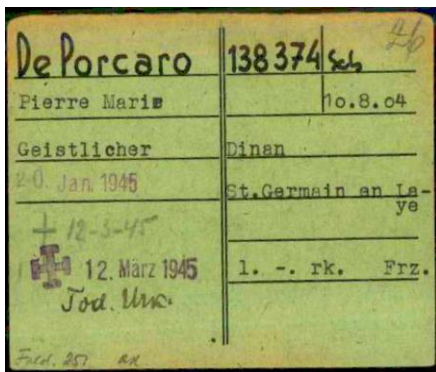 De Porcaro
138374 Sch
Pierre Marie
10.8.04
Geistlicher
Dinan
20. Jan. 1945
St.Germain an La-
ye
12-3-45
12. März 1945
1. -. rk. Frz.
Tod. Urk.